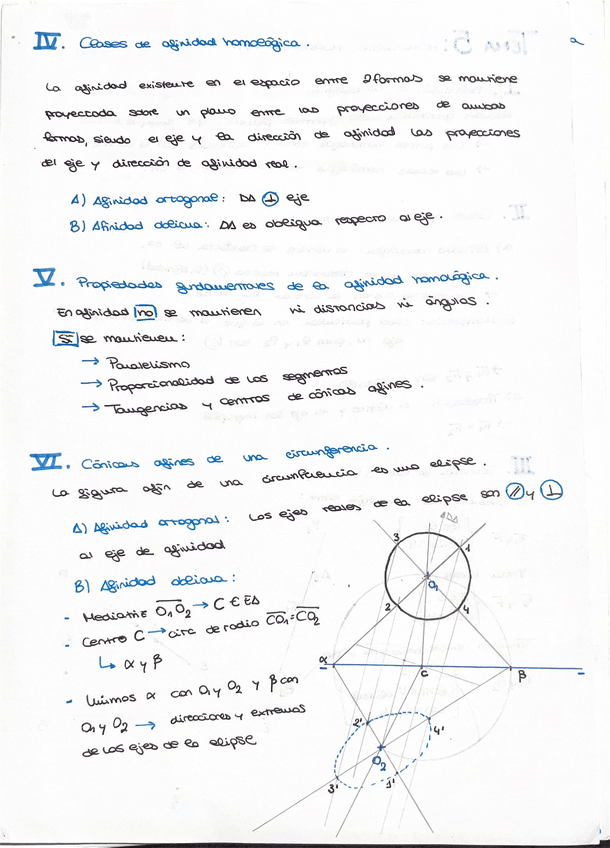 IV. Clases de afinidad homológica.
La afinidad existente en el espacio entre 2 formas se mantiene
proyectada sobre un plano entre las proyecciones de ambas
formas, siendo el eje y la dirección de afinidad las proyecciones
del eje y dirección de afinidad real.
A) Afinidad ortogonal: DA ⊥ eje
B) Afinidad oblicua: DA es obligua respecto al eje.
V. Propiedades fundamentales de la afinidad homológica.
En afinidad no se mantienen ni distancias ni ángulos.
Si se mantienen:
→ Paralelismo
→ Proporcionalidad de los segmentos
→ Tangencias y centros de cónicas afines.
VI. Cónicas afines de una circunferencia.
La figura afín de una circunferencia es una elipse.
A) Afinidad ortogonal: Los ejes reales de la elipse son // y ⊥
al eje de afinidad
B) Afinidad oblicua:
- Mediatriz O1O2 → C ∈ EA
- Centro C → circ de radio CO1 = CO2
↳ α y β
- Unimos α con O1 y O2 y β con
O1 y O2 → direcciones y extremos
de los ejes de la elipse
DA
3
1
O1
2
4
α
C
β
2'
4'
O2
3'
1'